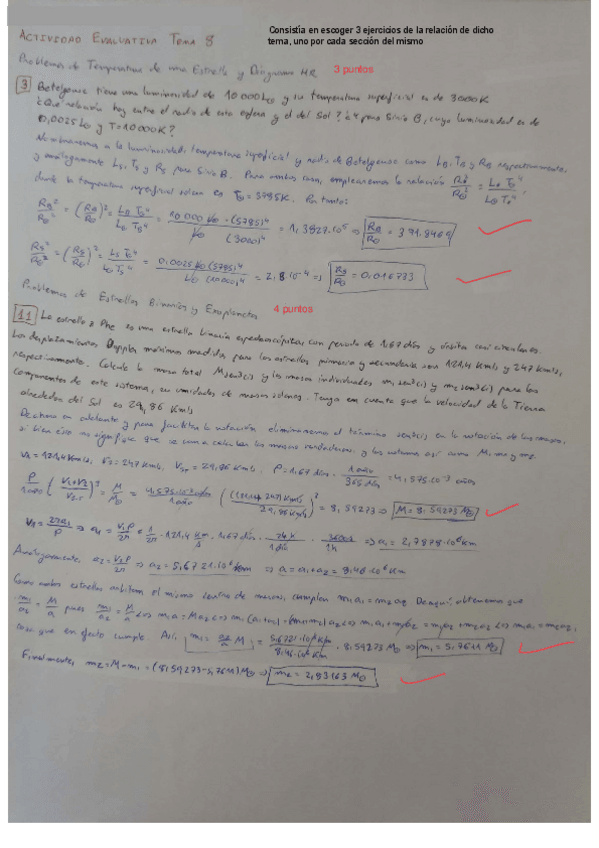 Consistía en escoger 3 ejercicios de la relación de dicho
tema, uno por cada sección del mismo
ACTIVIDAD EVALUATIVA TEMA 8
Problemas de Temperatura de una Estrella y Diagrama HR 3 puntos
3 Betelgeuse tiene una luminosidad de 10000 L⊙ y su temperatura superficial es de 3000K
¿Qué relación hay entre el radio de esta estrella y el del Sol? ¿Y para Sirio B, cuya luminosidad es de
0,0025 L⊙ y T=10000K?
Nombraremos a la luminosidad, temperatura superficial y radio de Betelgeuse como LB, TB y RB respectivamente,
y análogamente LS, TS y RS para Sirio B. Para ambos casos, emplearemos la relación RB²/R⊙² = LB T⊙⁴/L⊙ TB⁴,
donde la temperatura superficial solar es T⊙ = 5785K. Por tanto:
RB²/R⊙² = (RB/R⊙)² = LB T⊙⁴/L⊙ TB⁴ = 10 000 L⊙ · (5785)⁴/L⊙ (3000)⁴ = 1,3827·10⁵ ⇒ RB/R⊙ = 371,8469
RS²/R⊙² = (RS/R⊙)² = LS T⊙⁴/L⊙ TS⁴ = 0,0025 L⊙ (5785)⁴/L⊙ (10000)⁴ = 2,8·10⁻⁴ ⇒ RS/R⊙ = 0,016733
Problemas de Estrellas Binarias y Exoplanetas 4 puntos
11 La estrella Phe es una estrella binaria espectroscópica con periodo de 1,67 días y órbitas casi circulares.
Los desplazamientos Doppler máximos medidos para las estrellas primaria y secundaria son 121,4 Km/s y 247 Km/s,
respectivamente. Calcule la masa total M sen³(i) y las masas individuales m₁ sen³(i) y m₂ sen³(i) para las
componentes de este sistema, en unidades de masas solares. Tenga en cuenta que la velocidad de la Tierra
alrededor del Sol es 29,86 Km/s
De ahora en adelante y para facilitar la notación eliminaremos el término sen³(i) en la notación de las masas,
si bien eso no significa que se van a calcular las masas verdaderas, y las notamos así como M, m₁ y m₂.
V₁ = 121,4 Km/s, V₂ = 247 Km/s, = 29,86 Km/s, P = 1,67 días · 1 año/365 días = 4,575·10⁻³ años
P/1 año (V₁+V₂/)³ = M/M⊙ = 4,575·10⁻³ años/1 año ((121,4+247) Km/s/29,86 Km/s)³ = 8,59273 ⇒ M = 8,59273 M⊙
V₁ = 2πa₁/P ⇒ a₁ = V₁P/2π = 1/2π · 121,4 Km/s · 1,67 días · 24h/1 día · 3600s/1h ⇒ a₁ = 2,7878·10⁶ Km
Análogamente, a₂ = V₂P/2π ⇒ a₂ = 5,6721·10⁶ Km ⇒ a = a₁+a₂ = 8,46·10⁶ Km
Como ambas estrellas orbitan el mismo centro de masas, cumplen m₁a₁ = m₂a₂. De aquí, obtenemos que
m₁/a₂ = M/a pues m₁/a₂ = M/a ⇔ m₁a = Ma₂ ⇔ m₁(a₁+a₂) = (m₁+m₂)a₂ ⇔ m₁a₁+m₁a₂ = m₁a₂+m₂a₂ ⇔ m₁a₁ = m₂a₂,
cosa que en efecto cumple. Así, m₁ = a₂/a M = 5,6721·10⁶ Km/8,46·10⁶ Km · 8,59273 M⊙ ⇒ m₁ = 5,7611 M⊙
Finalmente, m₂ = M-m₁ = (8,59273-5,7611) M⊙ ⇒ m₂ = 2,83163 M⊙